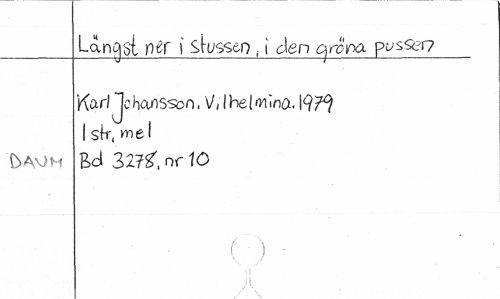 Längst ner i stussen, i den gröna pussen
Karl Johansson. Vilhelmina. 1979
1 str, mel
DAUM Bd 3278, nr 10